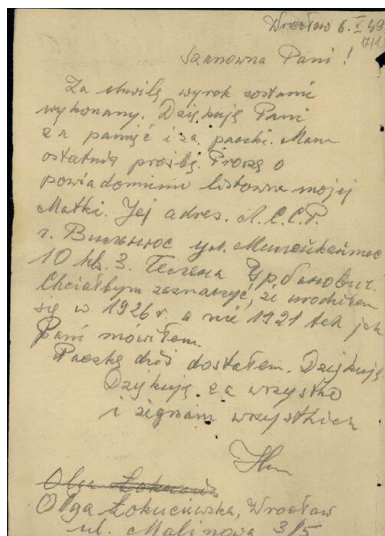 Wrocław 6. V 49
Szanowna Pani!
Za chwilę wyrok zostanie
wykonany. Dziękuję Pani
za pamięć i za paczki. Mam
ostatnią prośbę. Proszę o
powiadomienie listowne mojej
Matki. Jej adres.
г. Вильнюс ул.
10 кв. 3.
Chciałbym zaznaczyć, że urodziłem
się w 1926 r. a nie 1921 tak jak
Pani mówiłem
Paczkę dziś dostałem. Dziękuję
Dziękuję za wszystko
i żegnam wszystkich
Olga
Olga Łokuciewska, Wrocław
ul. Malinowa 3/5